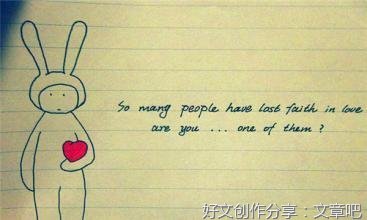 So many people have lost faith in love
are you ... one of them ?
好文创作分享：文章吧